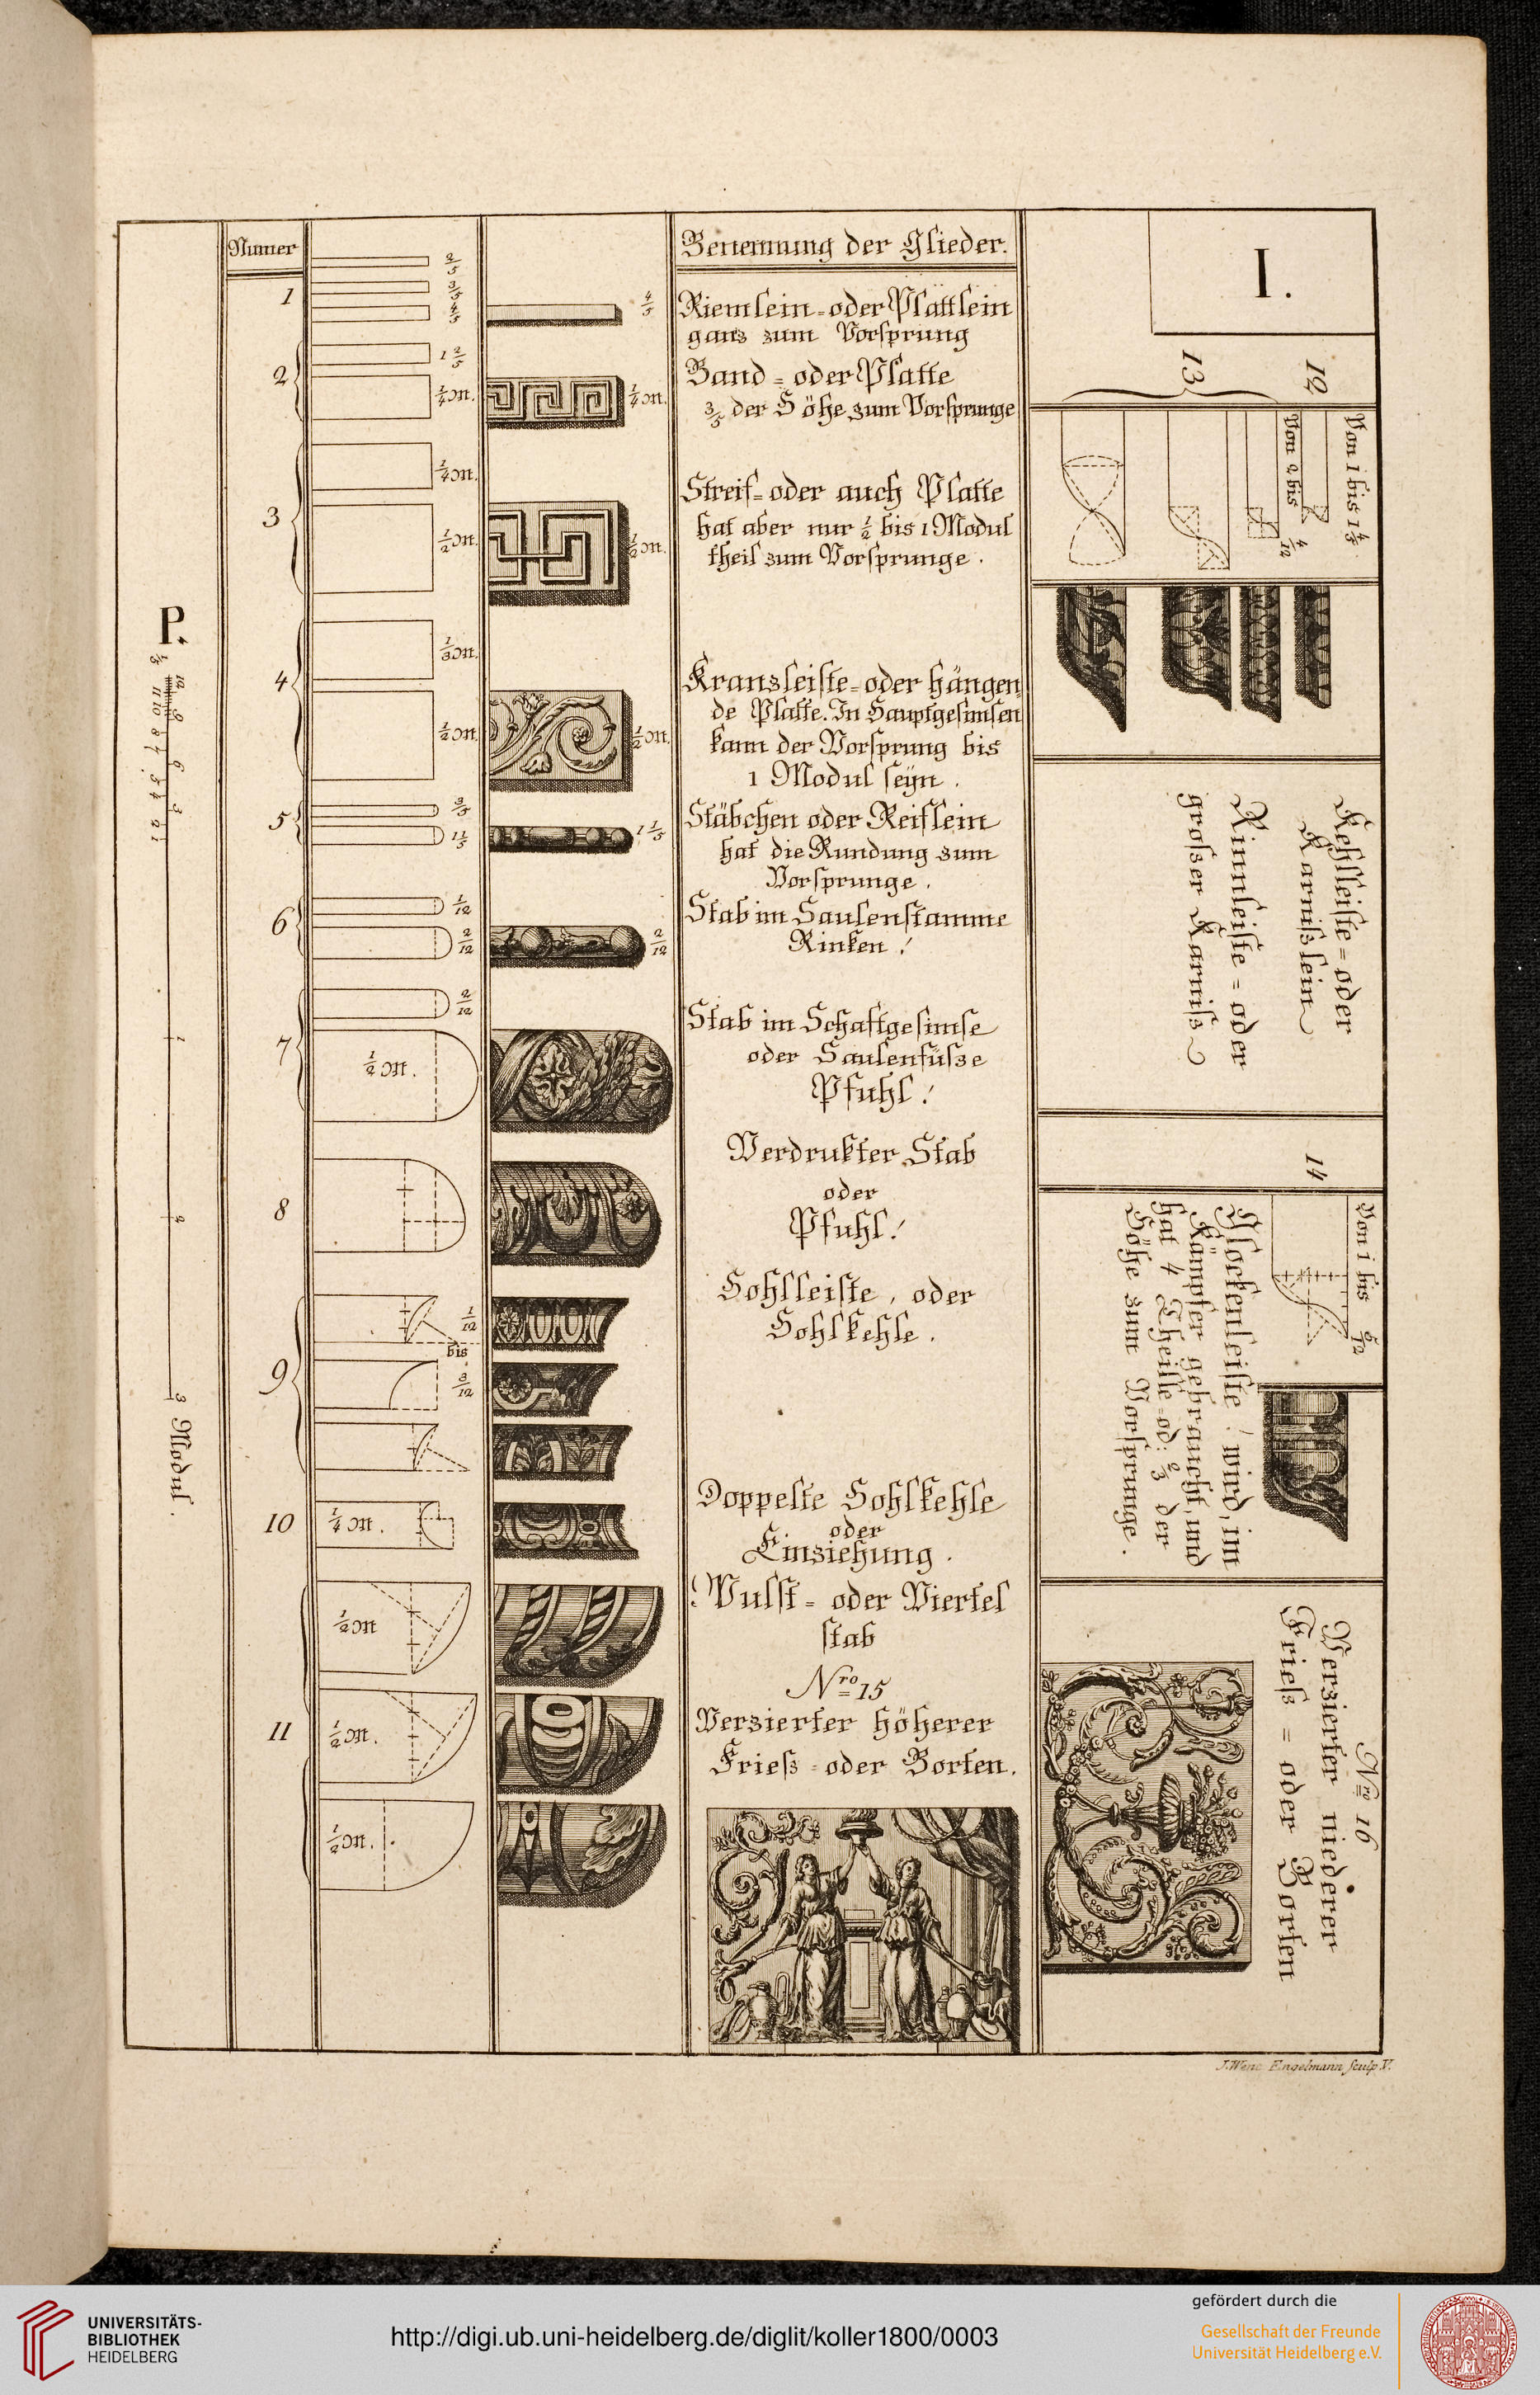 Numer
Benennung der Glieder.
I.
1
2/5
3/5
4/5
4/5
Riemlein=oder Plättlein
ganz zum Vorsprung
2
1 2/5
1/4 M.
1/4 M.
Band=oder Platte
3/5 der Höhe zum Vorsprunge
3
1/4 M.
1/2 M.
1/2 M.
Streif=oder auch Platte
hat aber nur 1/2 bis 1 Modul
theil zum Vorsprunge.
4
1/3 M.
1/2 M.
1/2 M.
Kranzleiste=oder hängen
de Platte. In Hauptgesimsen
kann der Vorsprung bis
1 Modul seÿn.
5
3/5
1 1/5
1 1/5
Stäbchen oder Reiflein
hat die Rundung zum
Vorsprunge.
6
1/12
2/12
2/12
Stab im Saulenstamme
Rinken!
7
2/12
1/2 M.
Stab im Schaftgesimse
oder Saulenfüsse
Pfuhl!
8
Verdrukter Stab
oder
Pfuhl!
9
1/12
bis
3/12
Hohlleiste, oder
Hohlkehle.
10
1/4 M.
Doppelte Hohlkehle
oder
Einziehung.
11
1/2 M
1/2 M.
1/2 M.
Wulst=oder Viertel
stab
Nro 15
Verzierter höherer
Frieß=oder Borten.
12
Von 1 bis 1 4/5
13
Von 2 bis 4/12
Kehlleiste=oder
Karnißlein
Rinnleiste=oder
grosser Karniß
14
Von 1 bis 6/12
Glockenleiste! wird, im
Kämpfer gebraucht, und
hat 4 Theille=od: 2/3 der
Höhe zum Vorsprunge.
Nro 16
Verzierter niederer
Frieß=oder Borten
P.
1/3
12
11
10
9
8
7
6
5
4
3
2
1
1
2
3 Modul.
J. Wenc Engelmann sculp. V.
UNIVERSITÄTS-
BIBLIOTHEK
HEIDELBERG
http://digi.ub.uni-heidelberg.de/diglit/koller1800/0003
gefördert durch die
Gesellschaft der Freunde
Universität Heidelberg e.V.